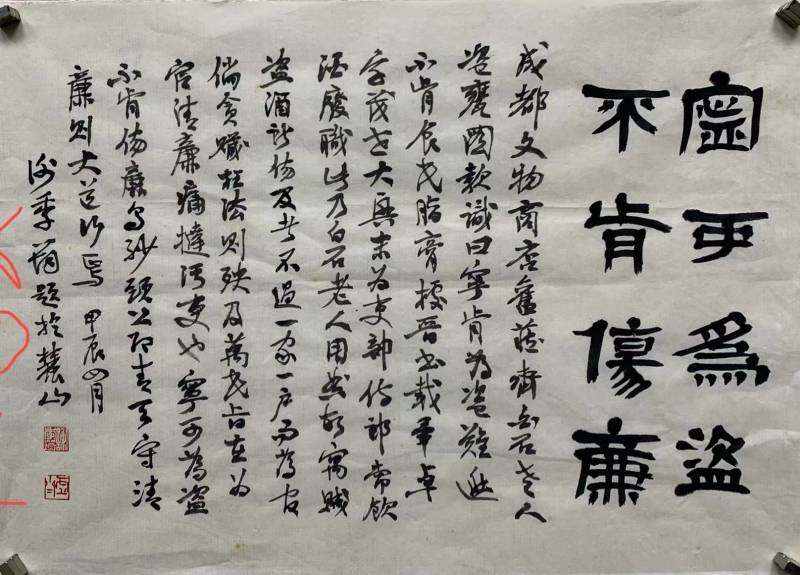 寧可為盜
不肯傷廉
成都文物商店舊藏齊白石老人
盜甕圖款識曰寧肯為盜難逃
不肯食民脂膏據晉書載畢卓
字茂世大興末為吏部侍郎常飲
酒廢職此乃白石老人用典故寓賊
盜酒所傷及者不過一家一戶而為官
倘貪贓枉法則殃及萬民旨在為
官清廉痛撻污吏也寧可為盜
不肯傷廉烏紗頭上即青天守清
廉則大道行焉 甲辰四月
題於麓山